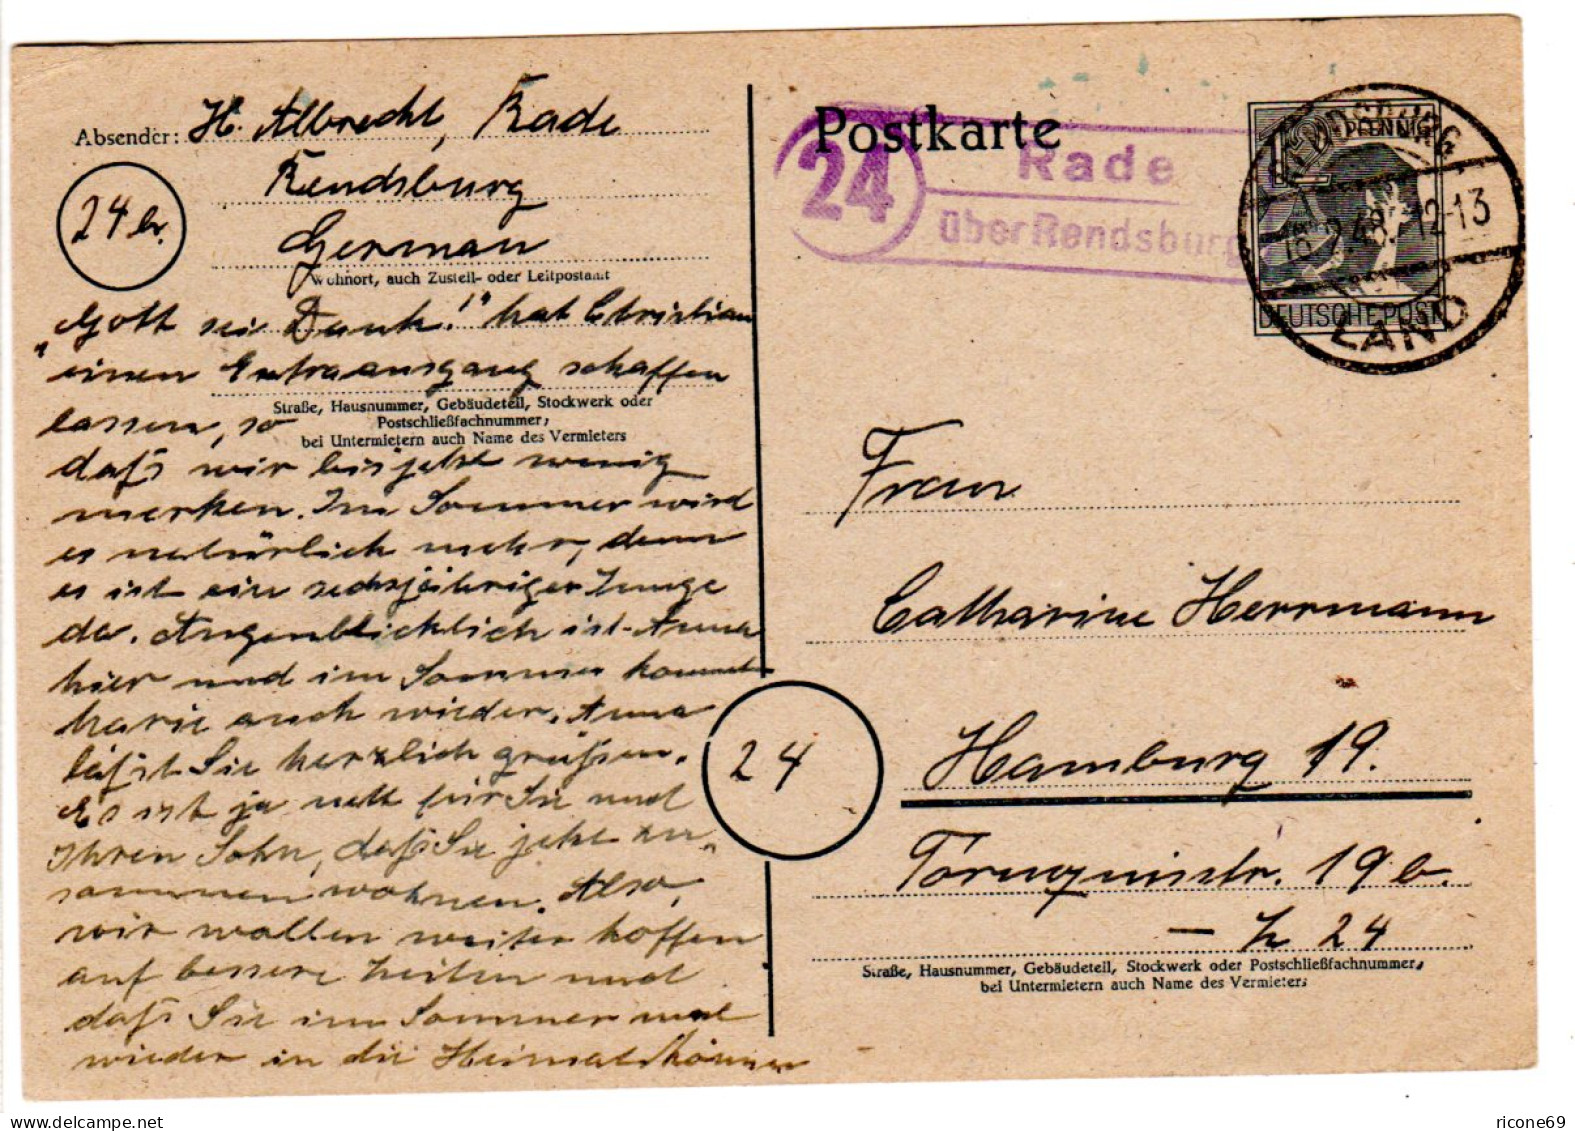 Absender: H. Albrecht, Rade
Rendsburg
24 b.
German
Wohnort, auch Zustell- oder Leitpostamt
„Gott sei Dank!" hat Christian
einen Extraausgang schaffen
Straße, Hausnummer, Gebäudeteil, Stockwerk oder
Postschließfachnummer;
bei Untermietern auch Name des Vermieters
lassen, so
daß wir bis jetzt wenig
merken. Im Sommer wird
es natürlich mehr, denn
es ist ein sechsjähriger Junge
da. Augenblicklich ist Anna
hier und im Sommer kommt
Marie auch wieder. Anna
läßt Sie herzlich grüßen.
Es ist ja nett für Sie und
Ihren Sohn, daß Sie jetzt zu„
sammen wohnen. Also,
wir wollen weiter hoffen
auf bessere Zeiten und
daß Sie im Sommer mal
wieder in die Heimat können
Postkarte
24
Rade
über Rendsburg
12 PFENNIG
DEUTSCHE POST
RENDSBURG
.2.48. 12-13
LAND
Frau
Catharine Herrmann
24
Hamburg 19.
Tornquiststr. 19 b.
— Z 24
Straße, Hausnummer, Gebäudeteil, Stockwerk oder Postschließfachnummer;
bei Untermietern auch Name des Vermieters
ricone69